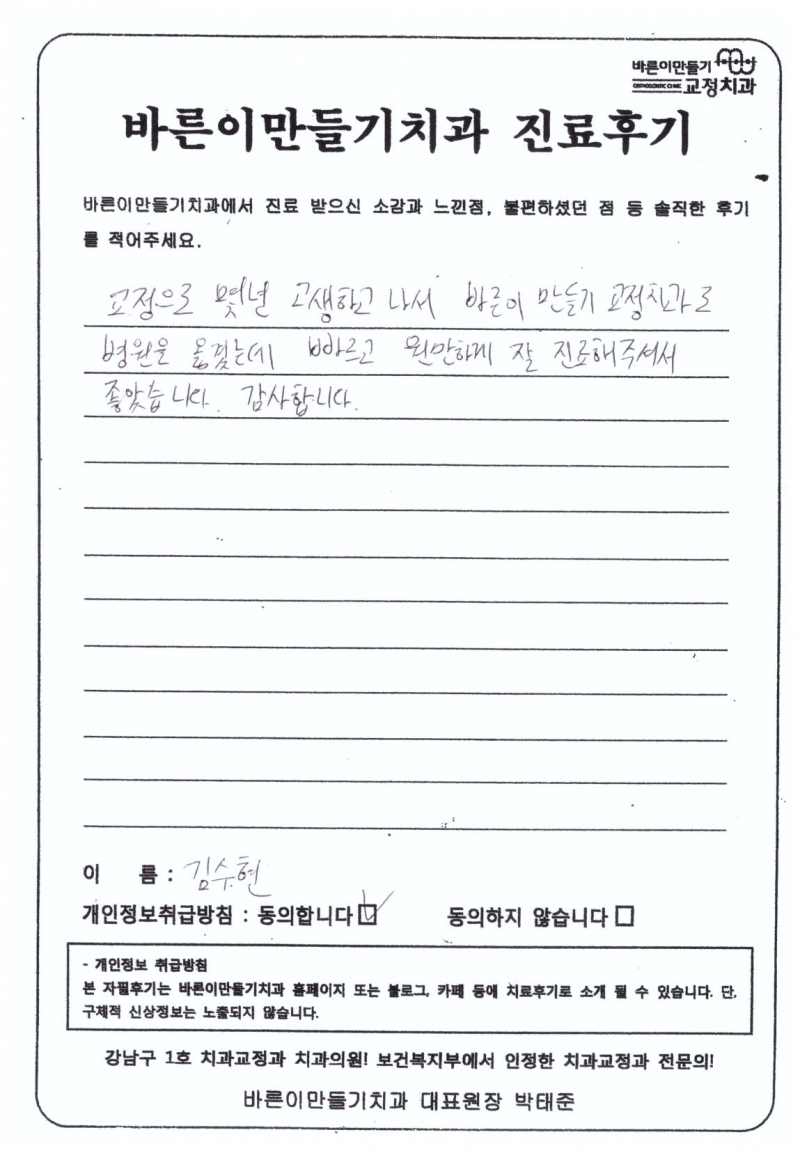 바른이만들기
ORTHODONTIC CLINIC 교정치과
바른이만들기치과 진료후기
바른이만들기치과에서 진료 받으신 소감과 느낀점, 불편하셨던 점 등 솔직한 후기
를 적어주세요.
교정으로 몇년 고생하고 나서 바른이 만들기 교정치과로
병원을 옮겼는데 빠르고 원만하게 잘 진료해주셔서
좋았습니다. 감사합니다.
이 름 : 김수현
개인정보취급방침 : 동의합니다 ☑ 동의하지 않습니다 ☐
- 개인정보 취급방침
본 자필후기는 바른이만들기치과 홈페이지 또는 블로그, 카페 등에 치료후기로 소개 될 수 있습니다. 단,
구체적 신상정보는 노출되지 않습니다.
강남구 1호 치과교정과 치과의원! 보건복지부에서 인정한 치과교정과 전문의!
바른이만들기치과 대표원장 박태준